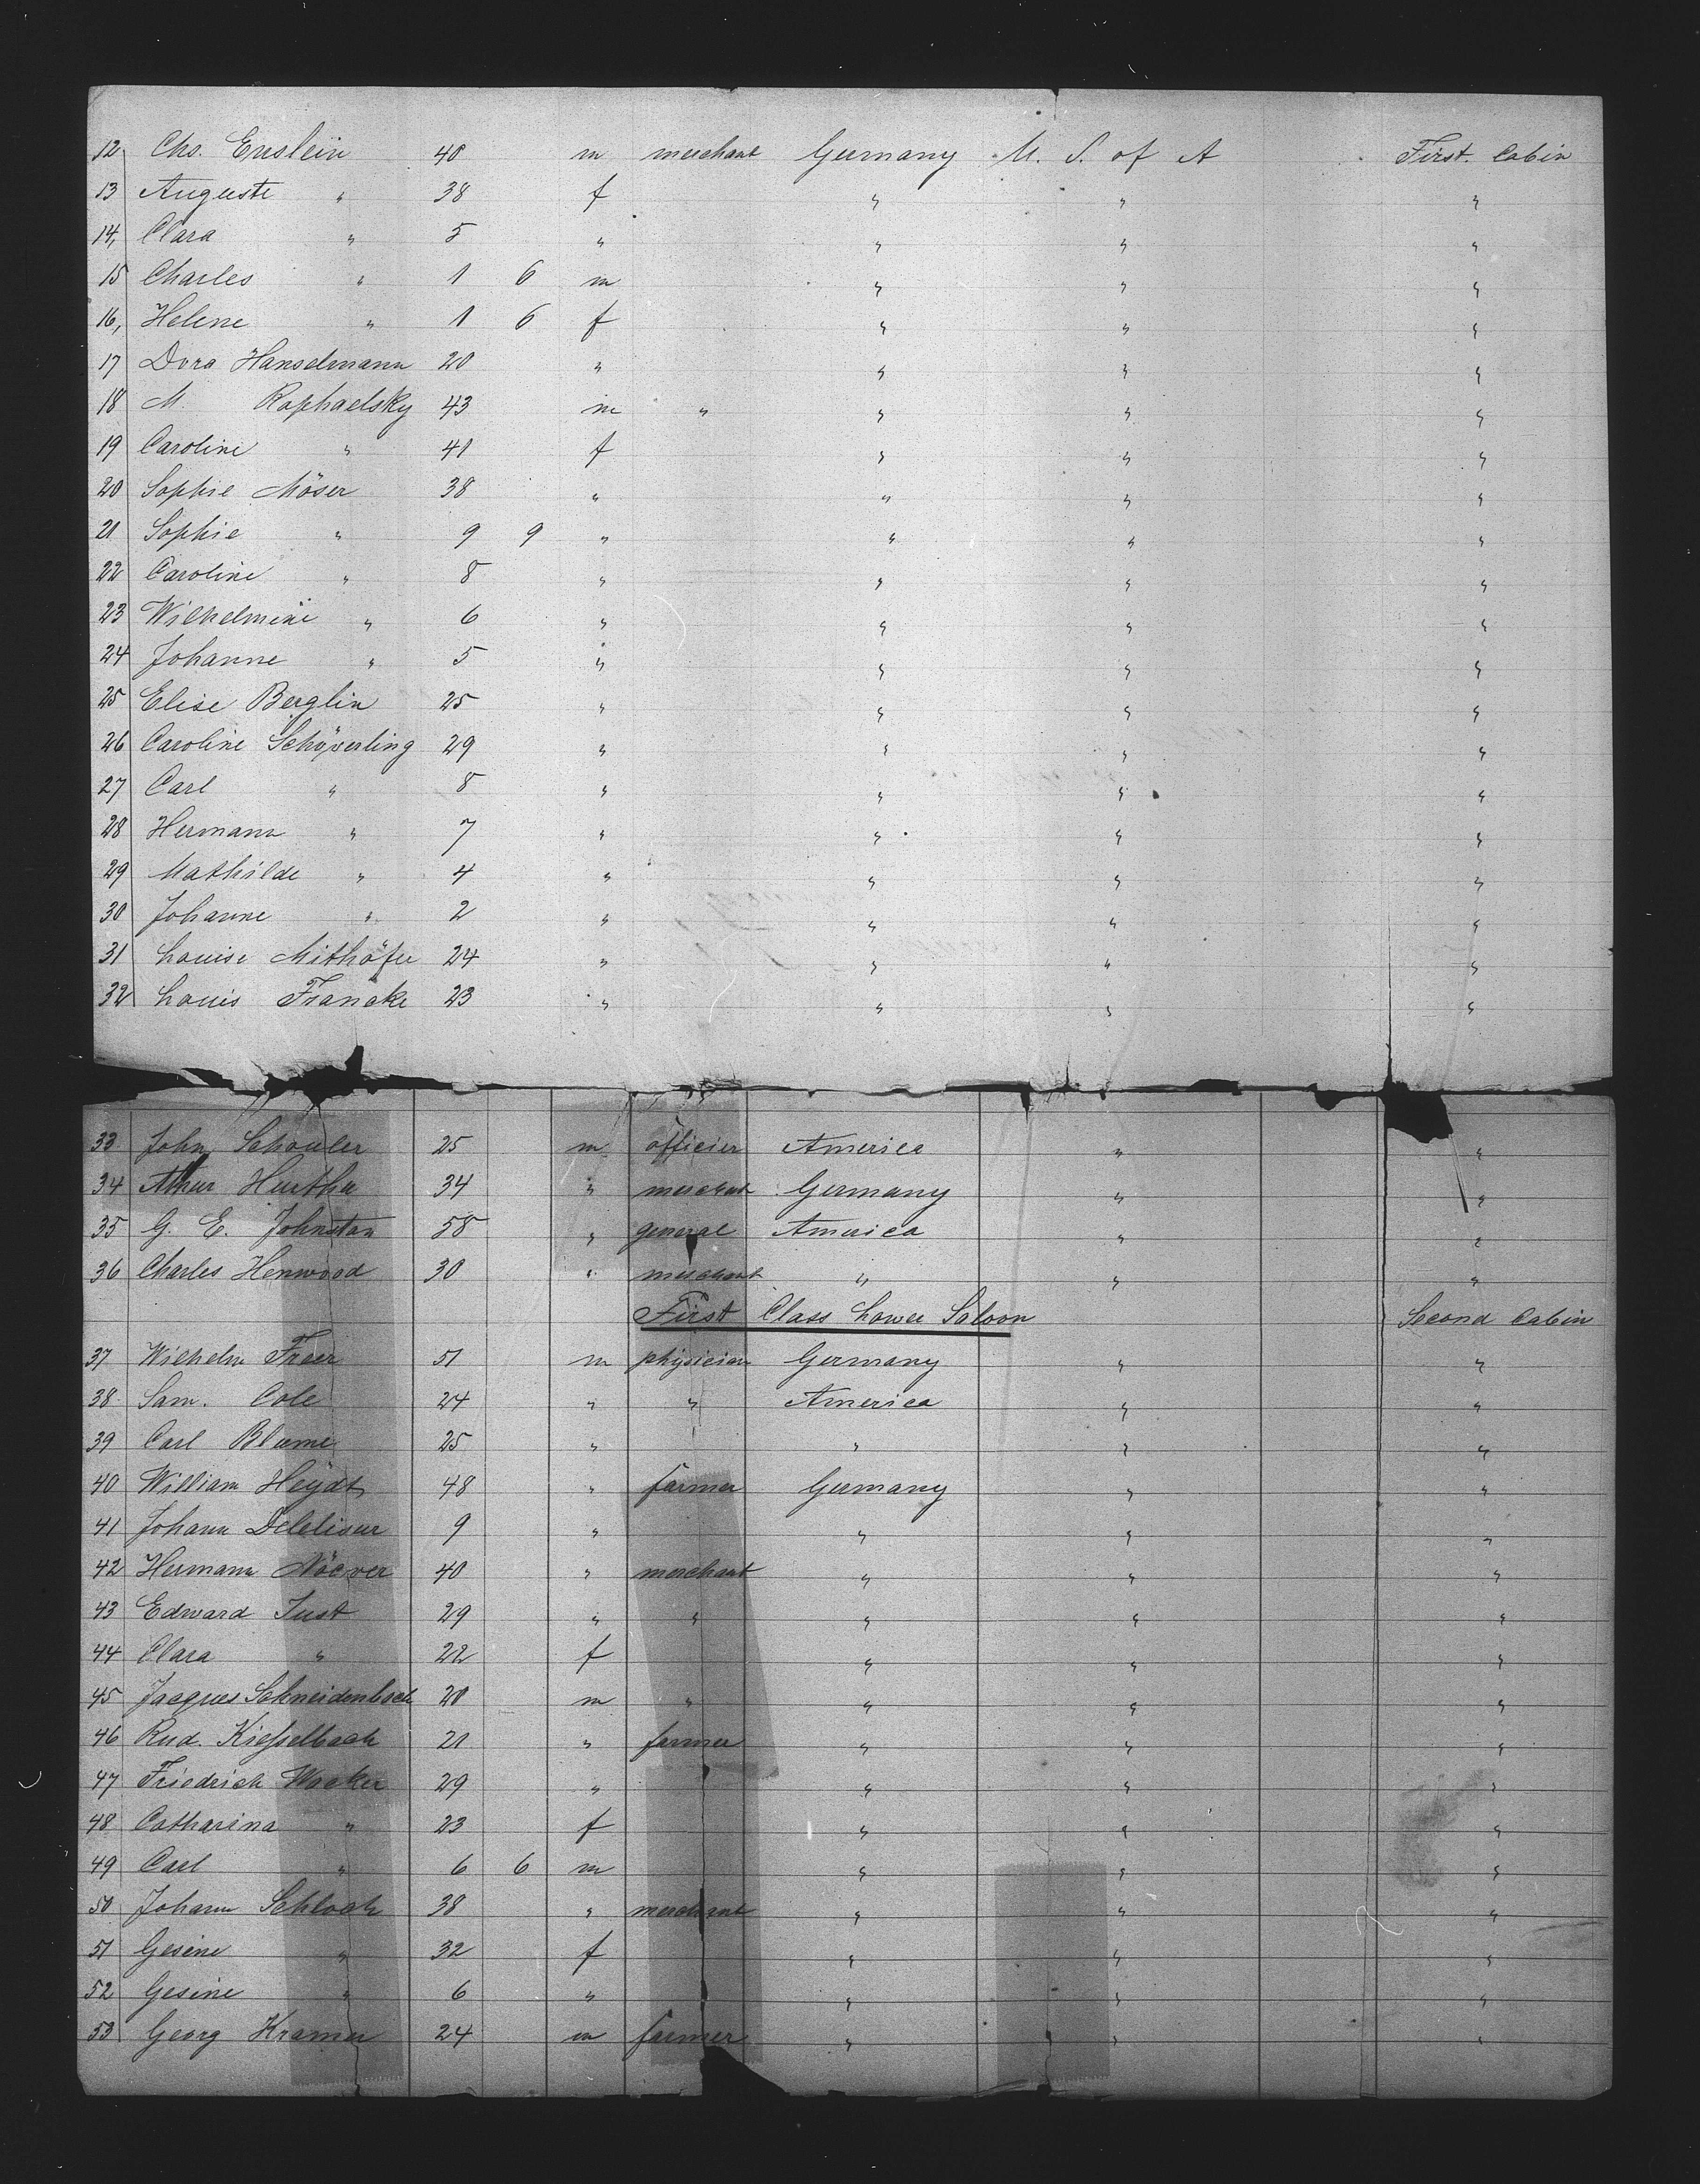 12 Chs. Enslein 40 m merchant Germany U. S. of A First. Cabin
13 Auguste " 38 f " " "
14, Clara " 5 " " " "
15 Charles " 1 6 m " " "
16, Helene " 1 6 f " " "
17 Dora Hanselmann 20 " " " "
18 M. Raphaelsky 43 m " " " "
19 Caroline " 41 f " " "
20 Sophie Möser 38 " " " "
21 Sophie " 9 9 " " " "
22 Caroline " 8 " " " "
23 Wilhelmine " 6 " " " "
24 Johanne " 5 " " " "
25 Elise Berglin 25 " " " "
26 Caroline Schöverling 29 " " " "
27 Carl " 8 " " " "
28 Hermann " 7 " " " "
29 Mathilde " 4 " " " "
30 Johanne " 2 " " " "
31 Louise Mithöfer 24 " " " "
32 Louis Francke 23 " " " "
33 John Schouler 25 m officier America " "
34 Hurther 34 " merchant Germany " "
35 G. E. Johnstan 58 " general America " "
36 Charles Henwood 30 " merchant " " "
First Class Lower Saloon Second Cabin
37 Wilhelm Freer 51 m physician Germany " "
38 Sam. Cole 24 " " America " "
39 Carl Blume 25 " " " "
40 William Heydt 48 " farmer Germany " "
41 Johann 9 " " " "
42 Hermann 40 " merchant " " "
43 Edward Just 29 " " " " "
44 Clara " 22 f " " "
45 Jacques Schneidenbach 20 m " " " "
46 Rud. Kiesselbach 21 " farmer " " "
47 Friedrich Wacker 29 " " " "
48 Catharina " 23 f " " "
49 Carl " 6 6 m " " "
50 Johann Schloch 38 " merchant " " "
51 Gesine " 32 f " " "
52 Gesine " 6 " " " "
53 Georg Kramer 24 m farmer " " "